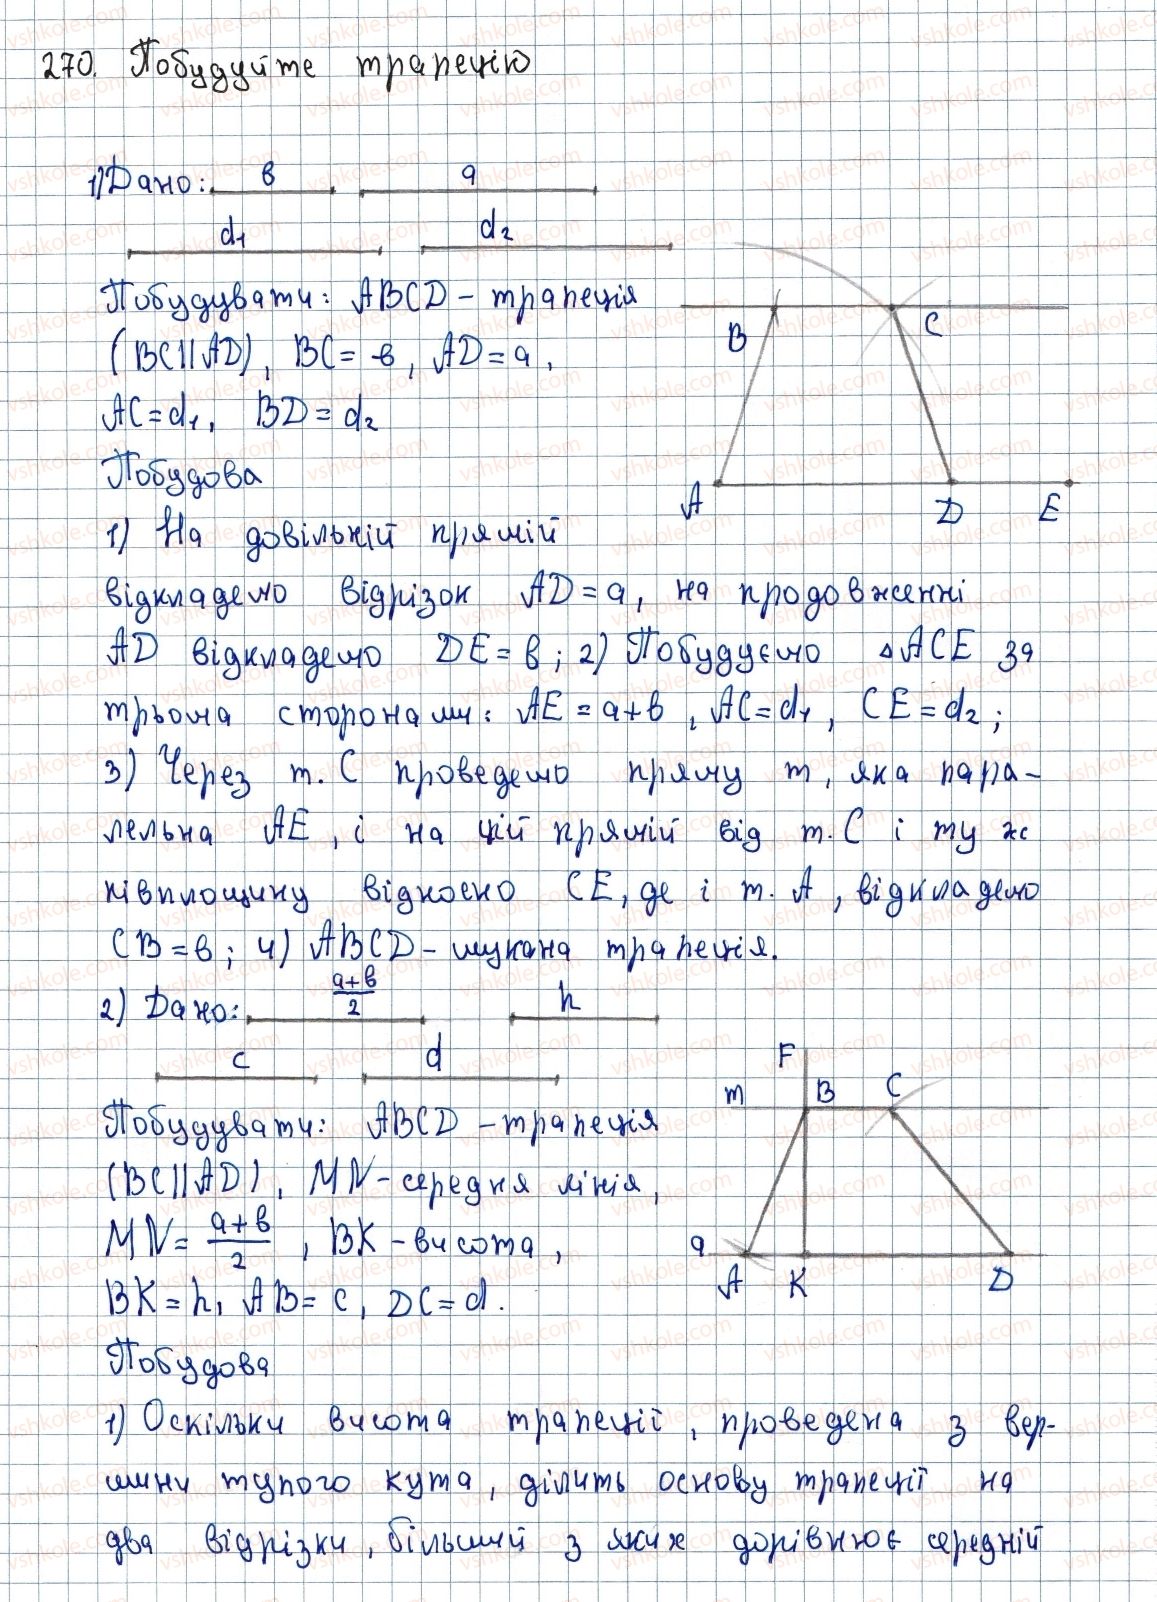 270. Побудуйте трапецію
1) Дано: в a
d₁ d₂
Побудувати: ABCD – трапеція
(BC||AD), BC = в, AD = a,
AC = d₁, BD = d₂
B C
A D E
Побудова
1) На довільній прямій
відкладемо відрізок AD = a, на продовженні
AD відкладемо DE = в; 2) Побудуємо △ACE за
трьома сторонами: AE = a+в, AC = d₁, CE = d₂;
3) Через т. C проведемо пряму m, яка пара-
лельна AE, і на цій прямій від т. C і ту ж
півплощину відносно CE, де і т. A, відкладемо
CB = в; 4) ABCD – шукана трапеція.
2) Дано: (a+в)/2 h
c d
F
m B C
Побудувати: ABCD – трапеція
(BC||AD), MN – середня лінія,
MN = (a+в)/2, BK – висота,
a A K D
BK = h, AB = c, DC = d.
Побудова
1) Оскільки висота трапеції, проведена з вер-
шини тупого кута, ділить основу трапеції на
два відрізки, більший з яких дорівнює середній
vshkole.com